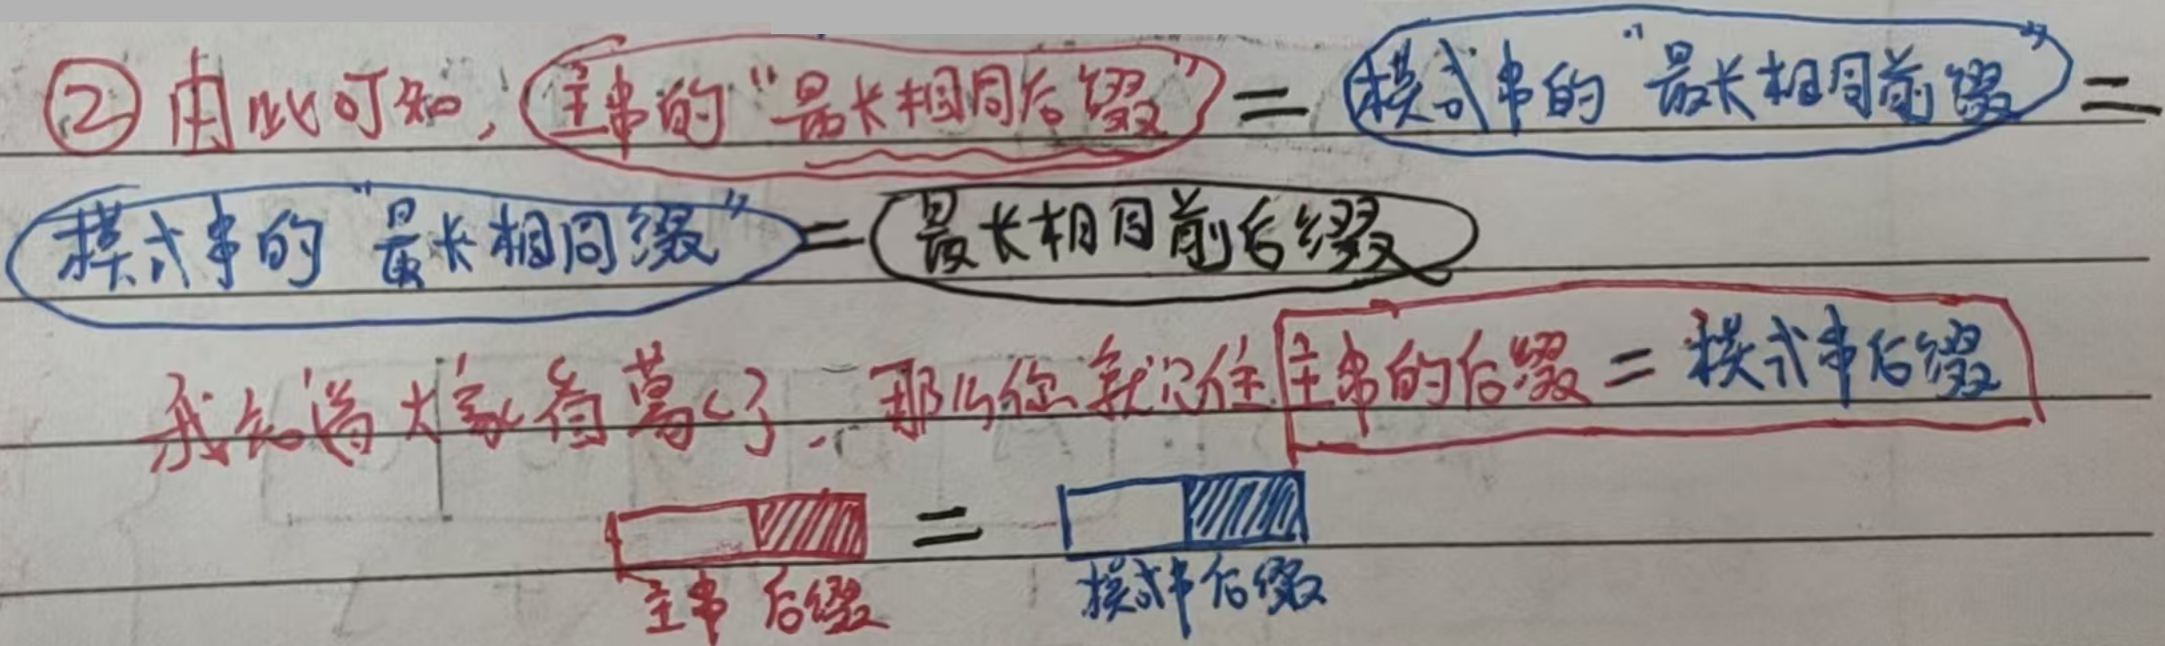 ② 由此可知，主串的“最长相同后缀”=模式串的“最长相同前缀”=
模式串的“最长相同缀”=最长相同前后缀
我知道大家看蒙了，那么你就记住主串的后缀=模式串后缀
=
主串 后缀 模式串后缀